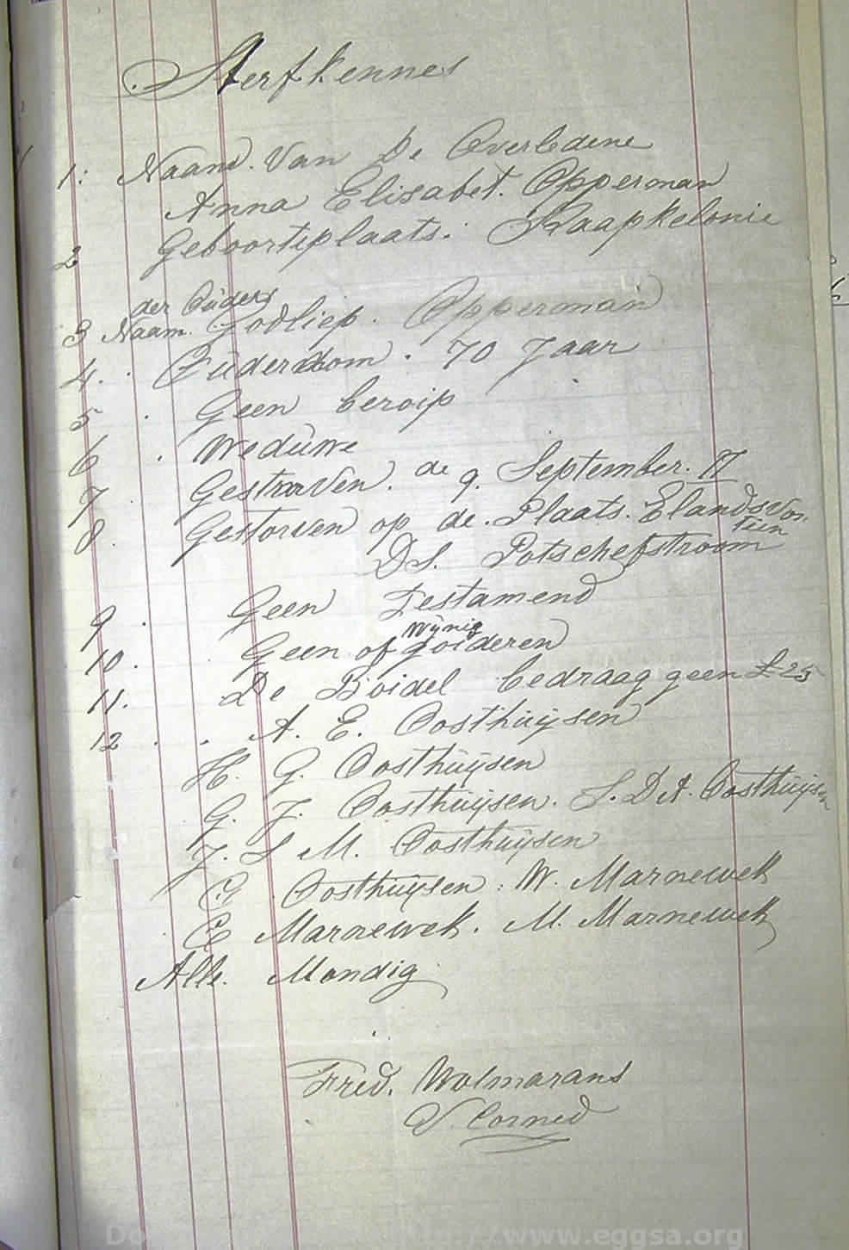 Sterfkennes
1: Naam. Van De Overledene
Anna Elisabet. Opperman
2 Geboorteplaats. Kaapkelonie
der Oüders
3 Naam. Godliep. Opperman
4. Oüderdom. 70 Jaar
5 . Geen beroip
6 . Wedüwe
7 . Gestorven. de 9. September. 17
8 . Gestorven op de. Plaats. Elandsvon
tein
DS. Potschefstroom
9 . Geen Testamend
Wynig
10. . Geen of goideren
11. De Boidel bedraag geen £25
12 . . A. E. Oosthüysen
H. G. Oosthüysen
G. J. Oosthüysen. S. D A. Oosthüysen
J. S M. Oosthüysen
C Oosthüysen. W. Marnewek
C Marnewek. M. Marnewek
Alle. Mondig
Fred. Wolmarans
V. Corned
www.eggsa.org